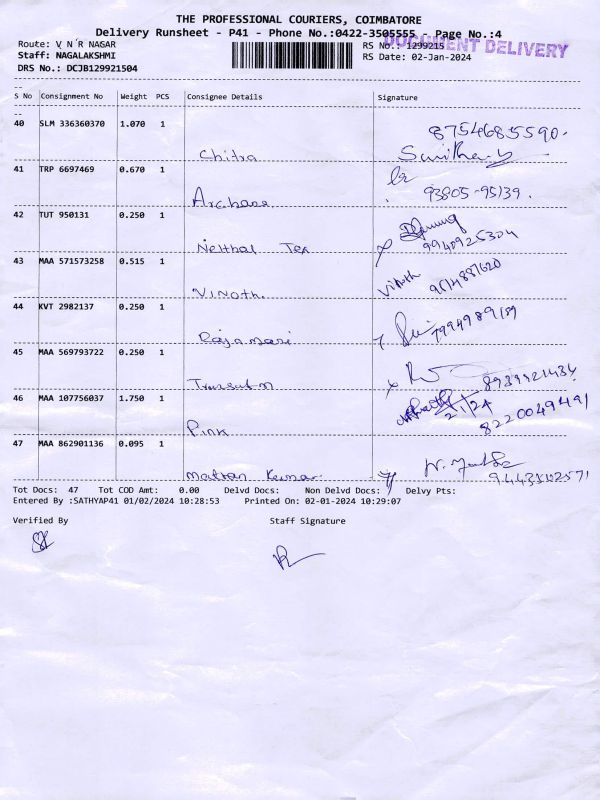 THE PROFESSIONAL COURIERS, COIMBATORE
Delivery Runsheet - P41 - Phone No.:0422-3505555 - Page No.:4
DOCUMENT DELIVERY
Route: V N R NAGAR RS No.: 1299215
Staff: NAGALAKSHMI RS Date: 02-Jan-2024
DRS No.: DCJB129921504
S No Consignment No Weight PCS Consignee Details Signature
40 SLM 336360370 1.070 1
8754685590.
Chitra
41 TRP 6697469 0.670 1
93805-95139.
Archana
42 TUT 950131 0.250 1
9940925304
Neithal Tex
43 MAA 571573258 0.515 1
Vinoth
Vinoth.
44 KVT 2982137 0.250 1
Rajamani
45 MAA 569793722 0.250 1
8939921434
46 MAA 107756037 1.750 1
2/1/24
8220049491
Pink
47 MAA 862901136 0.095 1
Kumar
Tot Docs: 47 Tot COD Amt: 0.00 Delvd Docs: Non Delvd Docs: Delvy Pts:
Entered By :SATHYAP41 01/02/2024 10:28:53 Printed On: 02-01-2024 10:29:07
Verified By Staff Signature